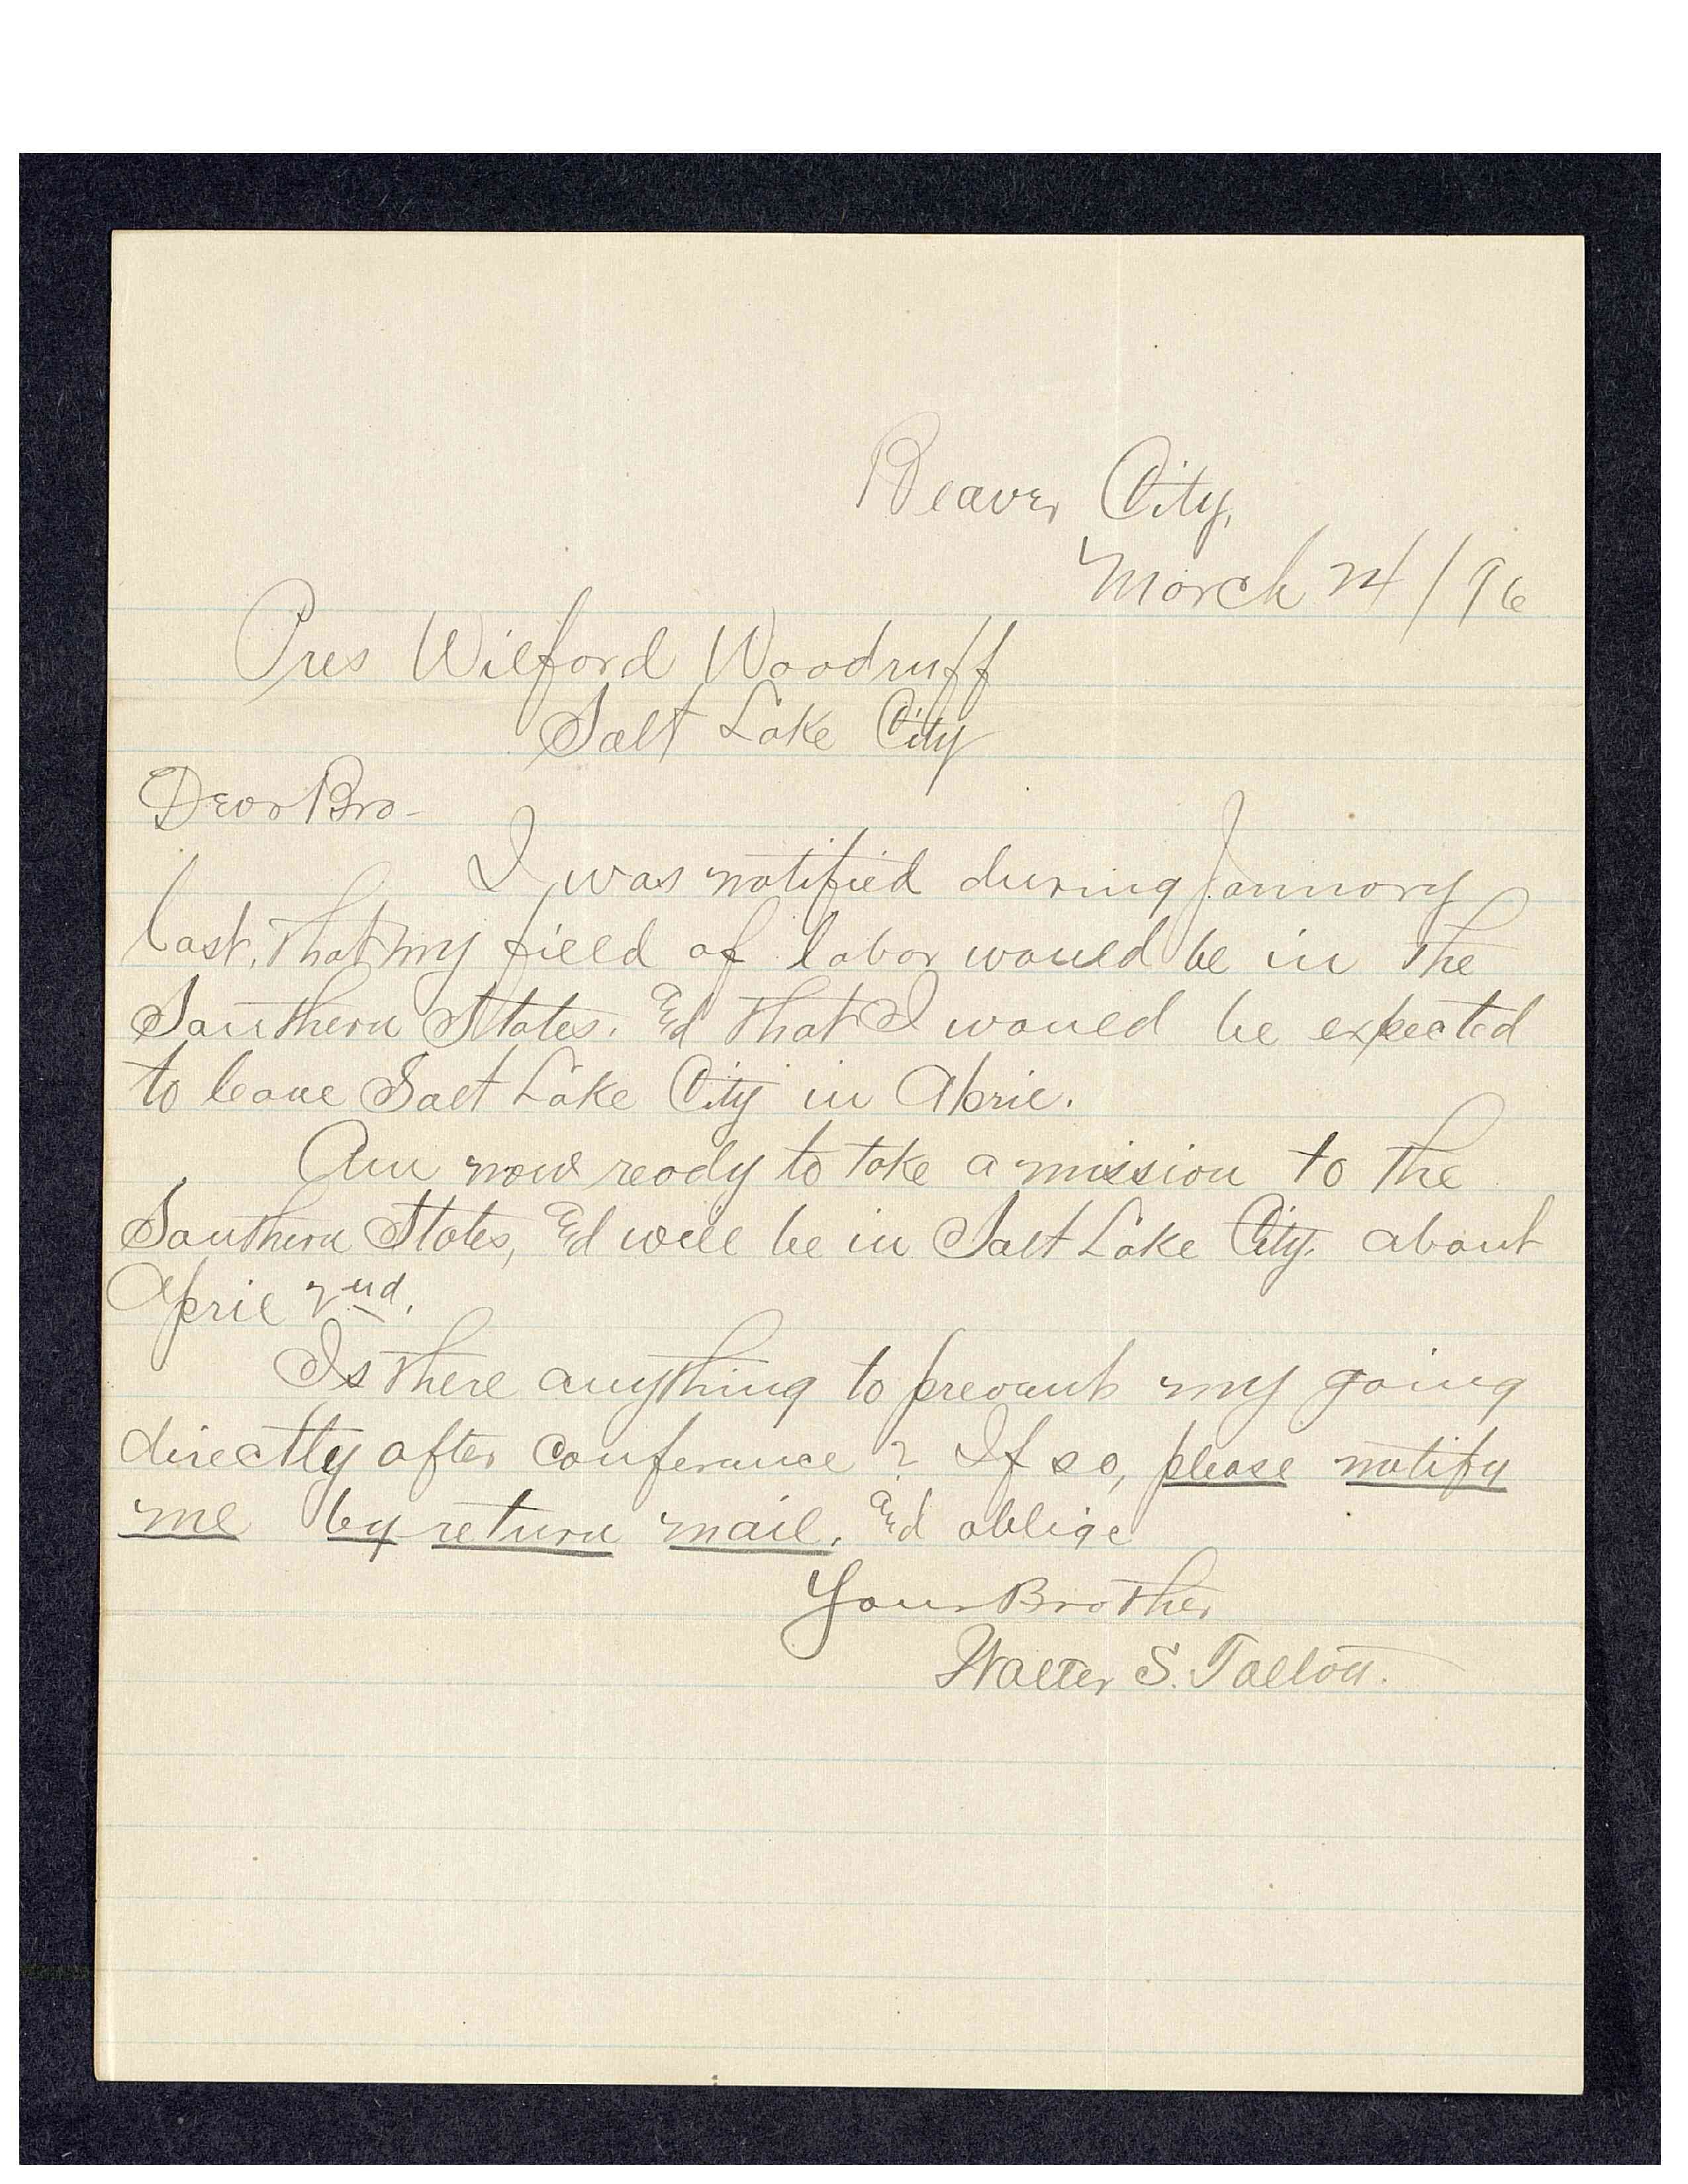 Beaver City,
March 24/96
Pres Wilford Woodruff
Salt Lake City
Dear Bro-
I was notified during January
last, that my field of labor would be in the
Southern States. and that I would be expected
to leave Salt Lake City in April.
Am now ready to take a mission to the
Southern States, and will be in Salt Lake City. about
April 2nd.
Is there anything to prevent my going
directly after conference? If so, please notify
me by return mail. and oblige
Your Brother
Walter S. Tolton.